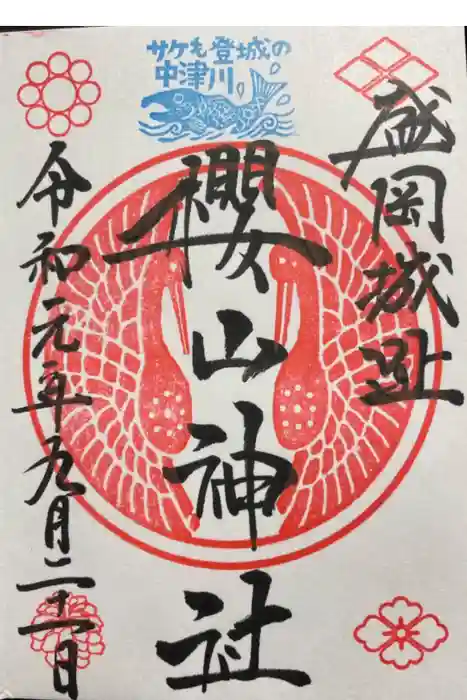 サケも登城の
中津川
盛岡城趾
櫻山神社
令和元年九月二十一日